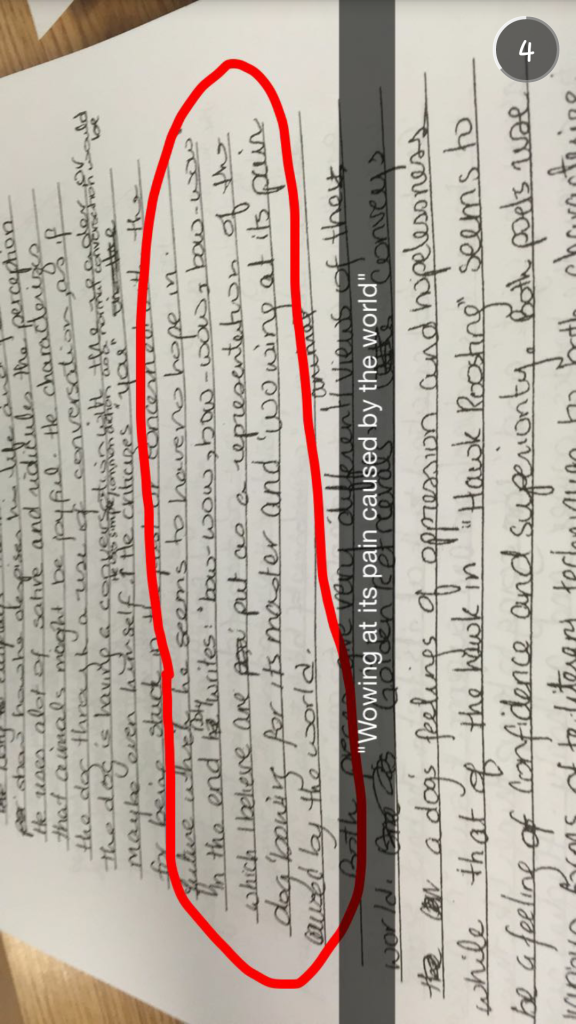 show how he despises his life and
He uses alot of satire and ridicules the perception
that animals maight be joyful. He characterizes
the dog through a use of conversation, as if
the dog is having a conversation with the reader or
he uses simple/common diction as a normal conversation would be
maybe even himself if he critiques "you"
for being stuck in the past or concerned with the
future which he seems to have no hope in.
In the end he writes: 'bow-wow, bow-wow, bow-wow
which I believe are put as a representation of the
dog 'bowing' for its master and 'wowing' at its pain
caused by the world.
Both very different views of their
world. Golden Retrievals conveys
"Wowing at its pain caused by the world"
the a dogs feelings of oppression and hopelessness
while that of the Hawk in "Hawk Roosting" seems to
be a feeling of confidence and superiority. Both poets use
various forms of literary techniques to both characterize
4